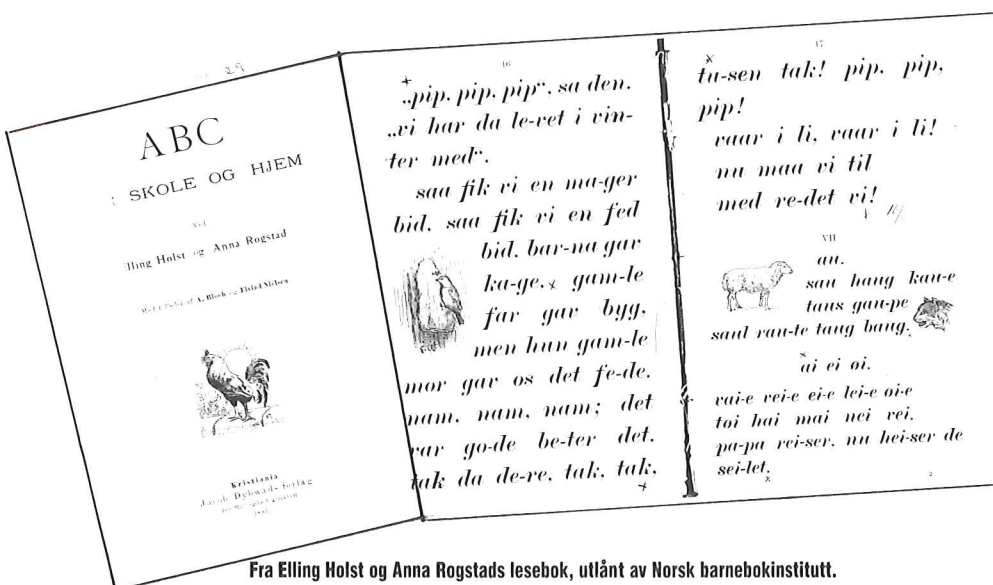 29
ABC
SKOLE OG HJEM
Ved
Elling Holst og Anna Rogstad
A. Bloch og Eivind Nielsen
Kristiania
Jacob Dybwads forlag
16
„pip, pip, pip“, sa den.
„vi har da le-vet i vin-
ter med“.
saa fik vi en ma-ger
bid, saa fik vi en fed
bid. bar-na gav
ka-ge, gam-le
far gav byg,
men hun gam-le
mor gav os det fe-de.
nam, nam, nam; det
var go-de be-ter det.
tak da de-re, tak, tak,
17
tu-sen tak! pip, pip,
pip!
vaar i li, vaar i li!
nu maa vi til
med re-det vi!
VII
au.
sau haug kau-e
taus gau-pe
saul rau-te taug baug.
ai ei oi.
vai-e vei-e ei-e lei-e oi-e
toi hai mai nei vei.
pa-pa rei-ser, nu hei-ser de
sei-let.
2
Fra Elling Holst og Anna Rogstads lesebok, utlånt av Norsk barnebokinstitutt.